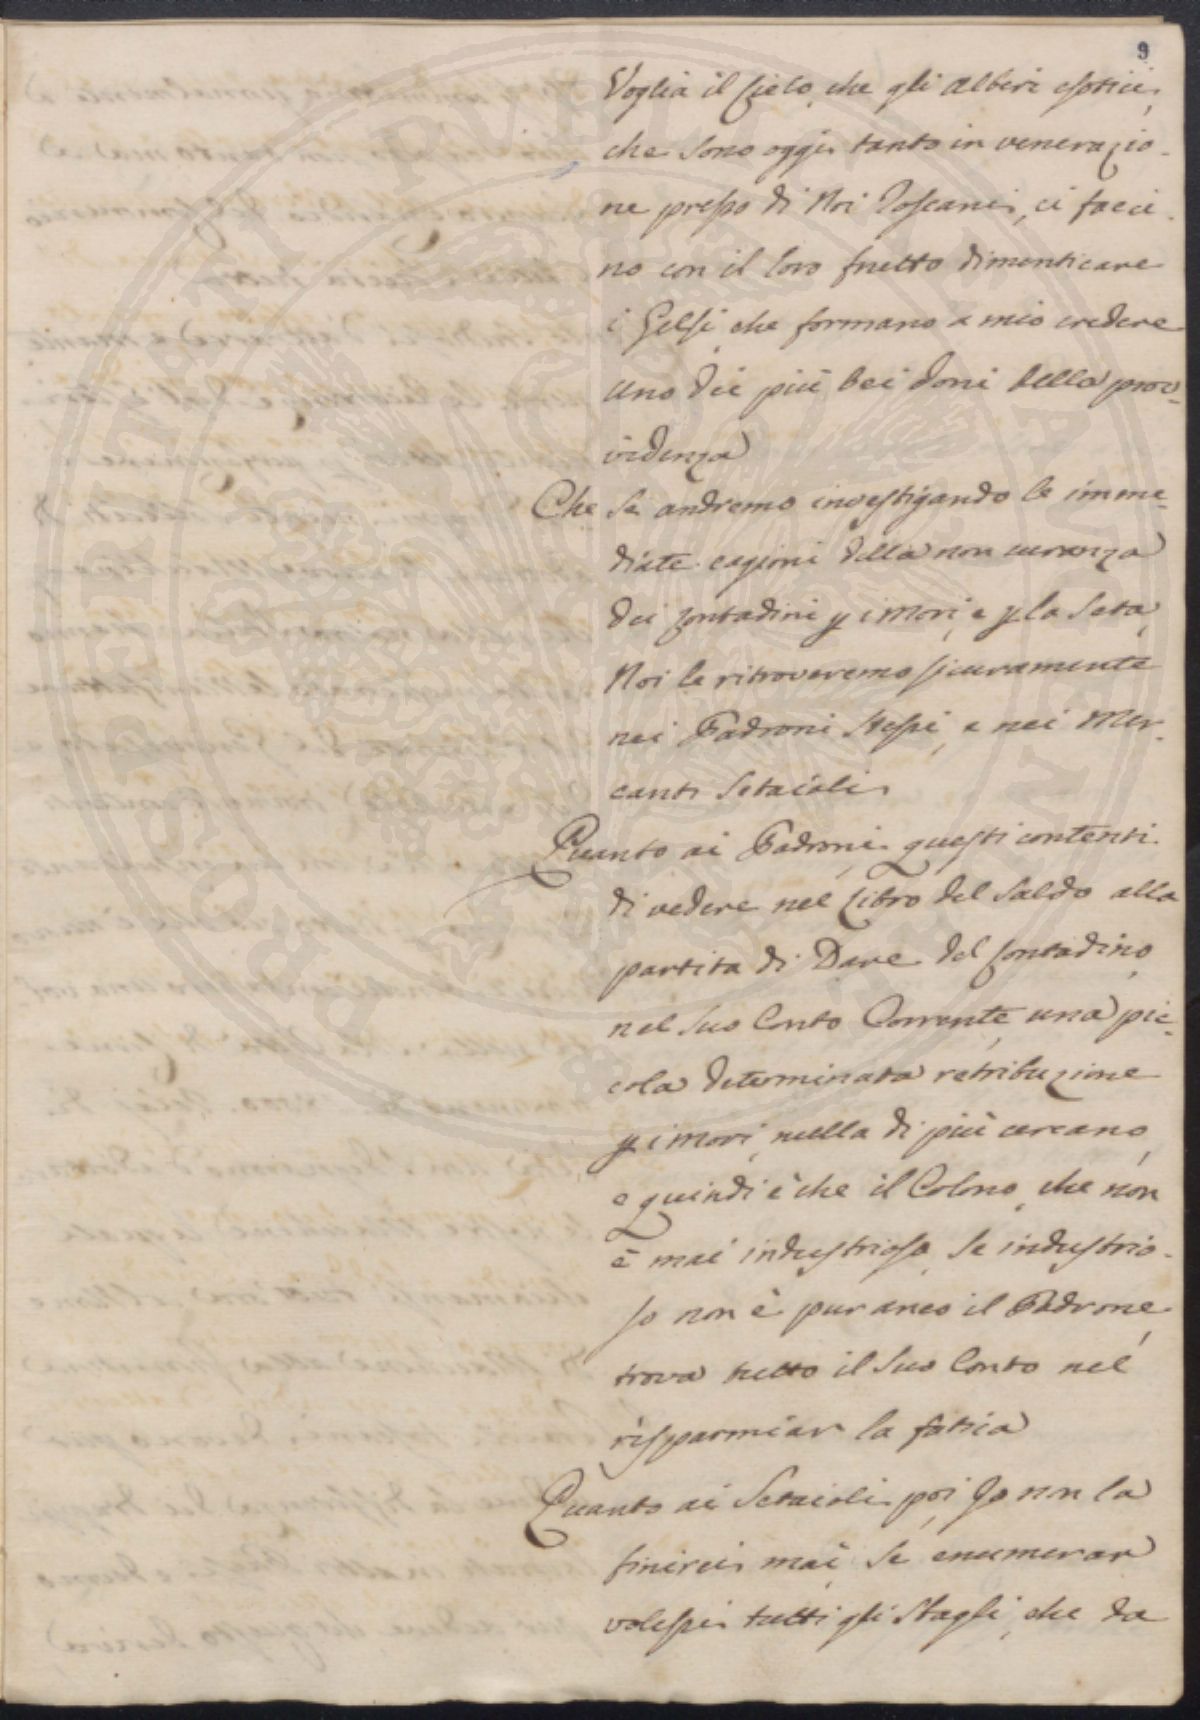 9
Voglia il Cielo, che gli alberi esotici,
che sono oggi tanto in venerazio-
ne presso di Noi Toscani, ci facci-
no con il loro frutto dimenticare
i Gelsi, che formano a mio credere
uno dei più bei doni della prov-
videnza
Che se andremo investigando le imme-
diate cagioni della non curanza
dei Contadini p i Mori, e p la Seta,
Noi le ritroveremo sicuramente
nei Padroni stessi, e nei Mer-
canti Setaioli
Quanto ai Padroni, questi contenti
di vedere nel Libro del Saldo alla
partita di Dare del Contadino,
nel suo Conto Corrente, una pic-
cola determinata retribuzione
p i Mori, nulla di più cercano,
e quindi è che il Colono, che non
è mai industrioso, se industrio-
so non è pur anco il Padrone,
trova tutto il suo Conto nel
risparmiar la fatica
Quanto ai Setaioli poi, Io non la
finirei mai, se enumerar
volessi tutti gli Stagli, che da
PROSPERITATI PUBLICAE AUGENDAE